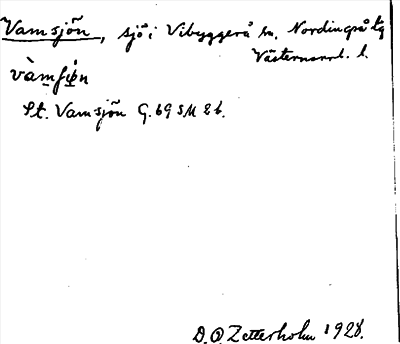 Vamsjön, sjö i Vibyggerå sn. Nordingrå tg
Västernorrl. l.
vàmʃø̀n
St. Vamsjön G. 69 SM 26.
D. O. Zetterholm 1928.